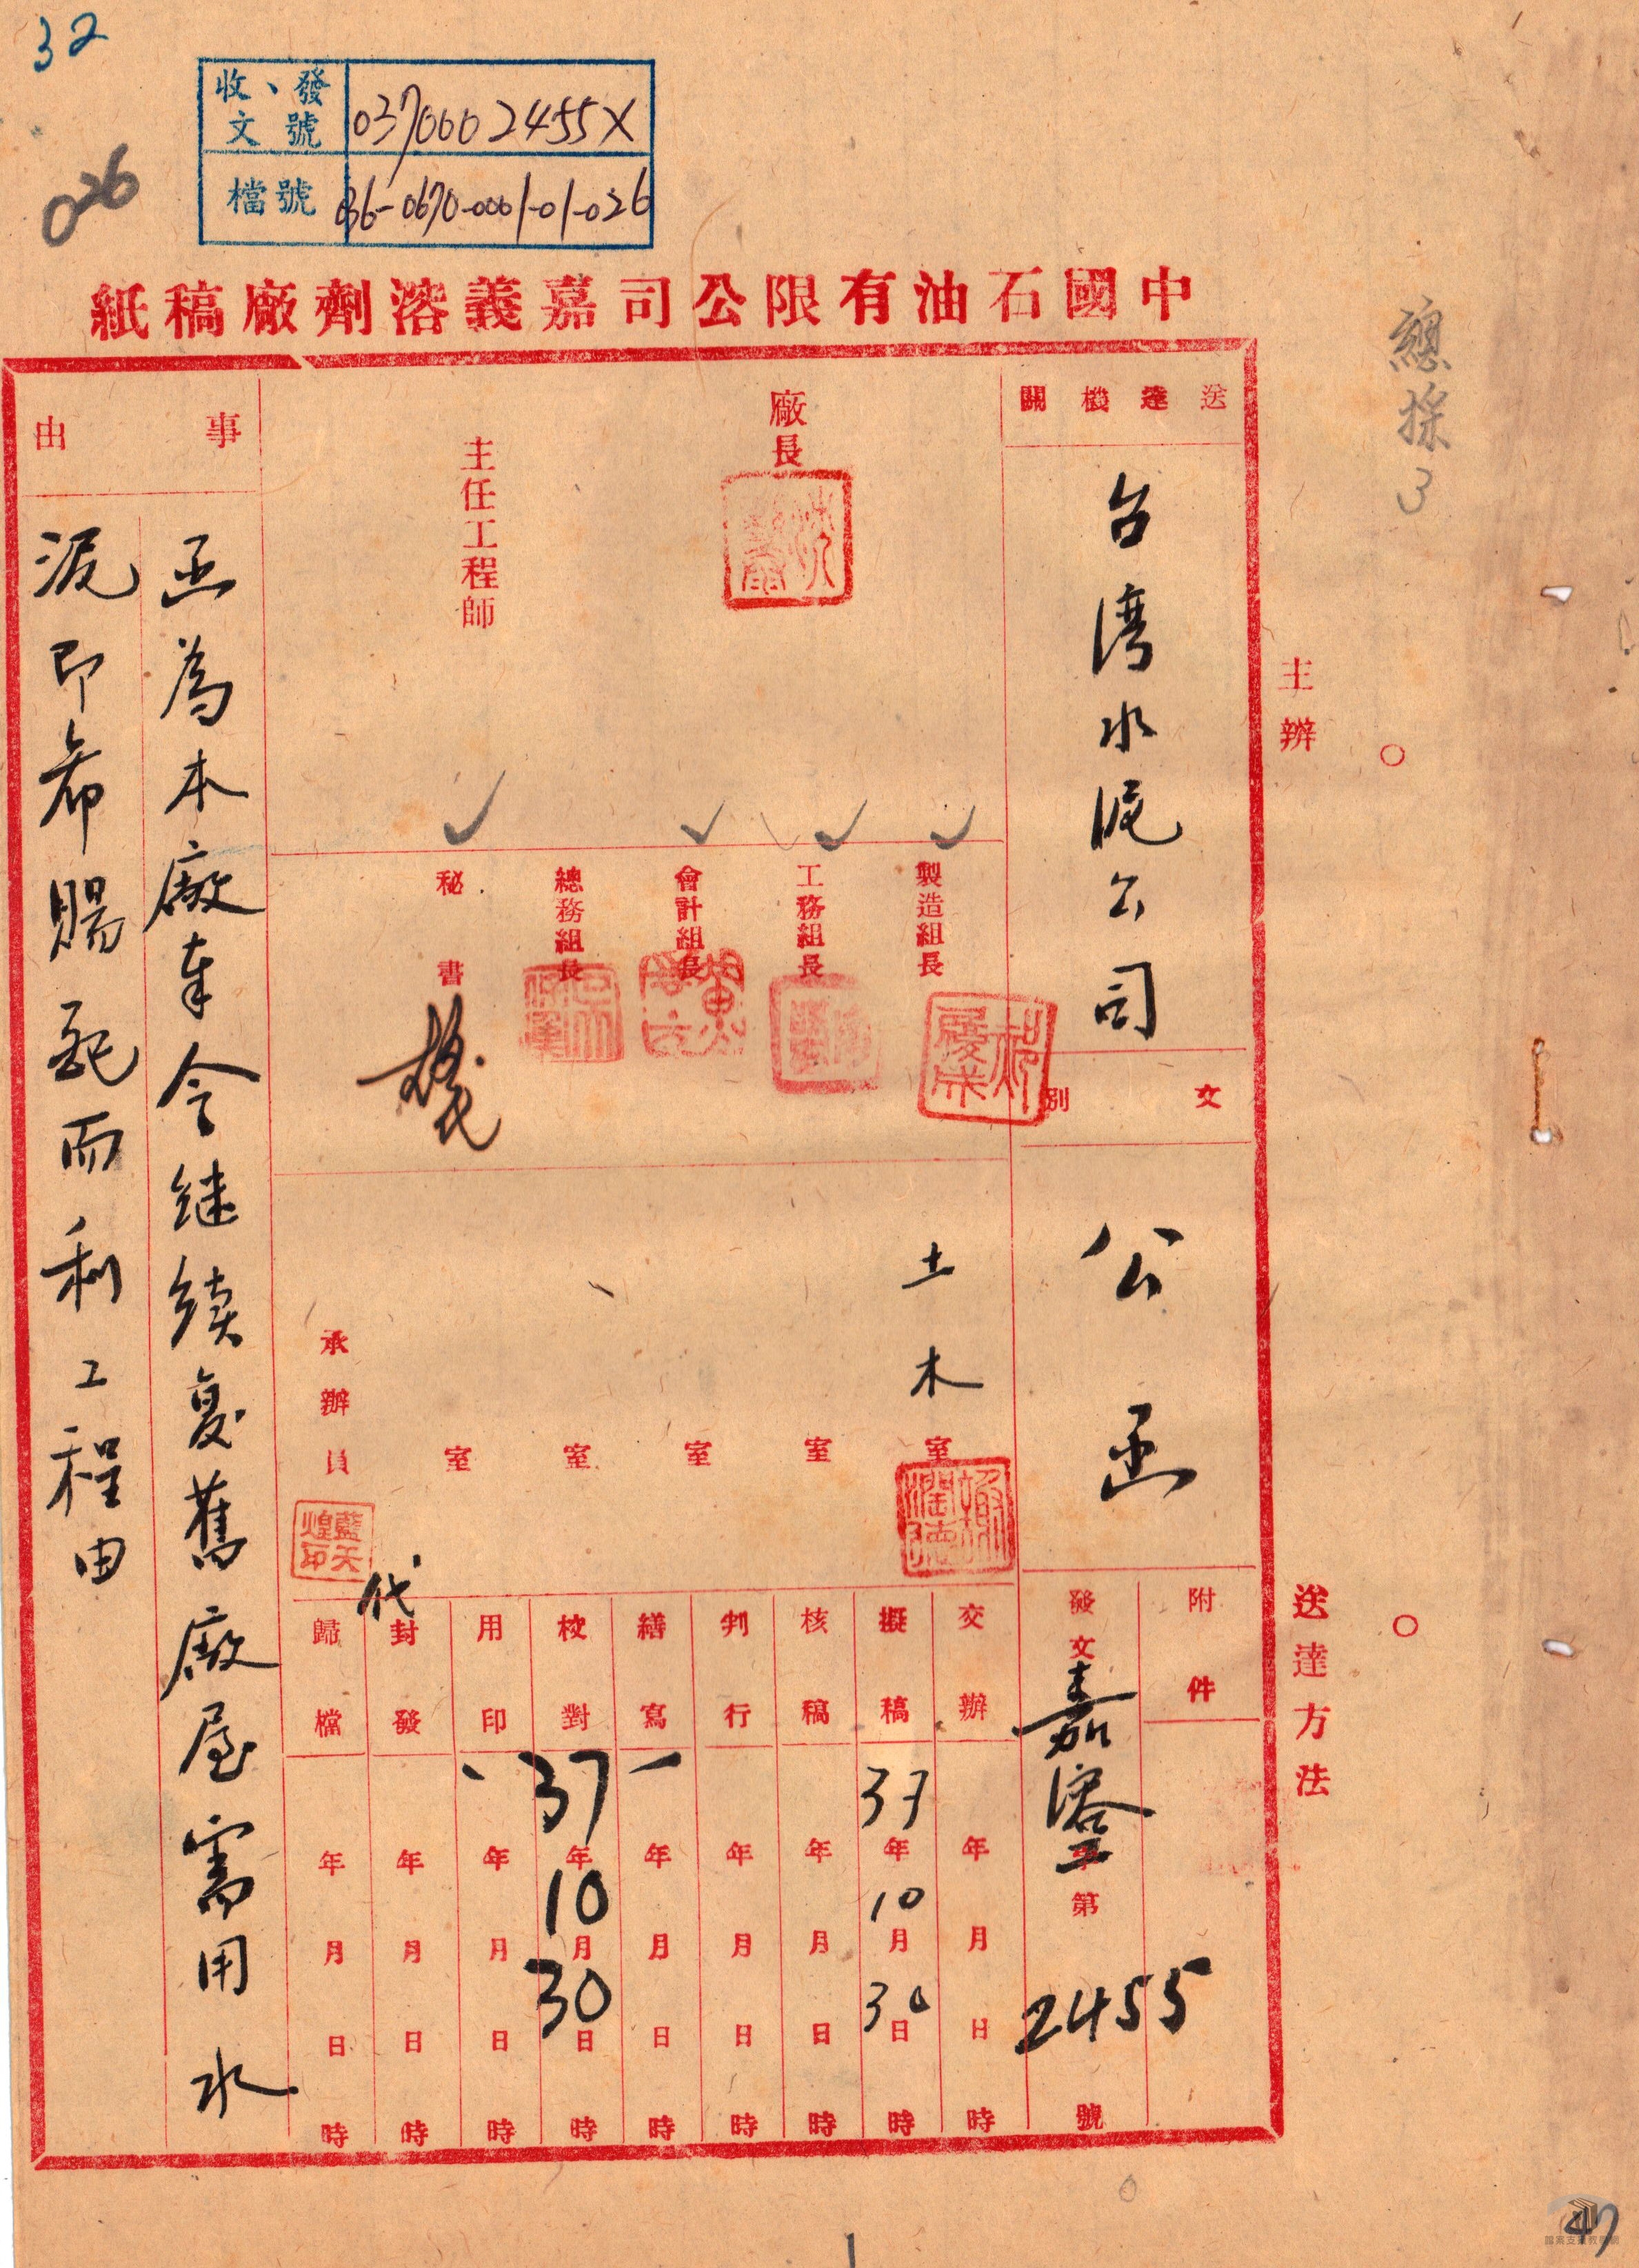 32
026
收、發文號 0370002455X
檔號 036-0670-0001-01-026
中國石油有限公司嘉義溶劑廠稿紙
總採3
主辦
送達方法
送達機關
台湾水泥公司
文別
公函
附件
發文嘉溶工字第2455號
廠長
主任工程師
製造組長
工務組長
會計組長
總務組長
秘書
土木室
室
室
室
室
承辦員
藍天煌印
代
交辦 年月日時
擬稿 37年10月30日時
核稿 年月日時
判行 年月日時
繕寫 年月日時
校對 37年10月30日時
用印 年月日時
封發 年月日時
歸檔 年月日時
事由
函為本廠奉令继續复舊廠屋需用水
泥即希賜配而利工程由
1
47